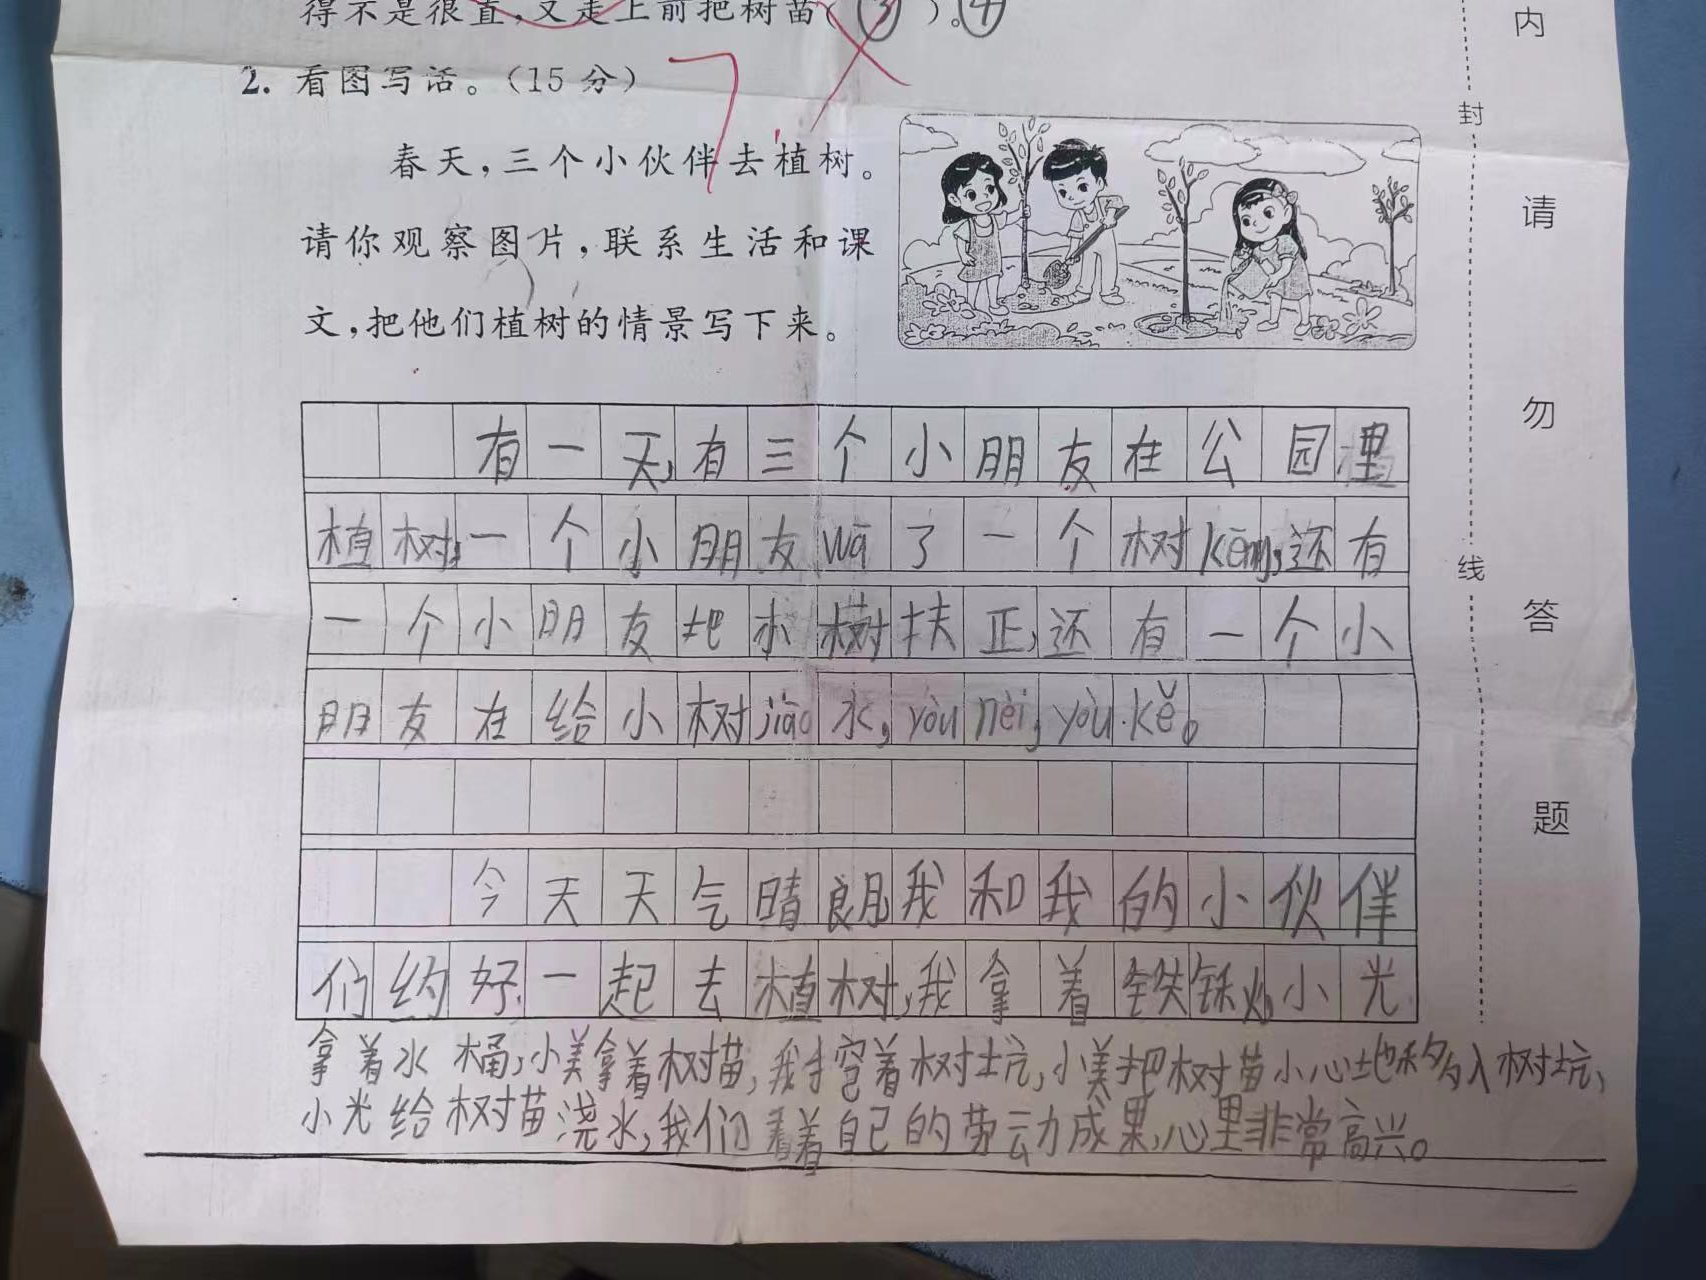 得不是很直,又走上前把树苗(③)。④
2. 看图写话。(15 分)
春天,三个小伙伴去植树。
请你观察图片,联系生活和课
文,把他们植树的情景写下来。
有一天,有三个小朋友在公园里
植树,一个小朋友wā了一个树kēng,还有
一个小朋友把小树扶正,还有一个小
朋友在给小树jiāo水,yòu nèi,yòu kě。
今天天气晴朗我和我的小伙伴
们约好一起去植树,我拿着铁锹,小光
拿着水桶,小美拿着树苗,我挖着树坑,小美把树苗小心地移入树坑,
小光给树苗浇水,我们看着自己的劳动成果,心里非常高兴。
内
封
请
勿
线
答
题